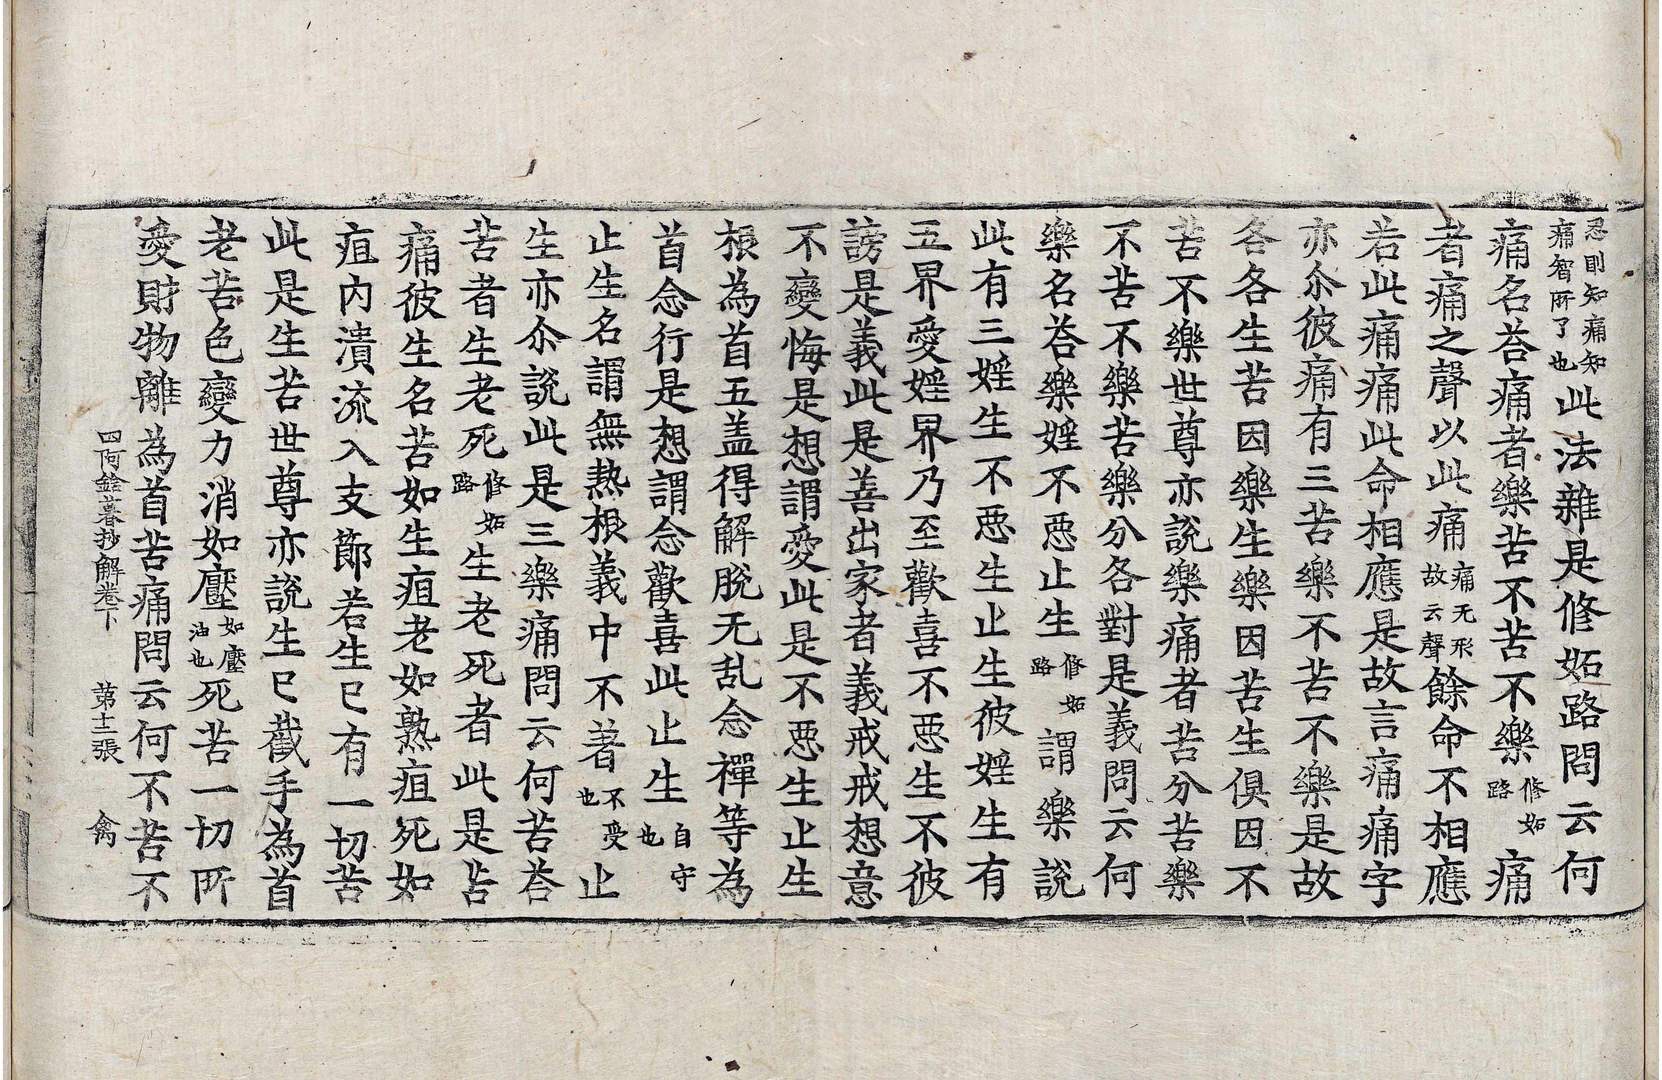 忍則知痛知痛智所了也此法雜是修妬路問云何
痛名荅痛者樂苦不苦不樂修妬路痛
者痛之聲以此痛痛无形故云聲餘命不相應
若此痛痛此命相應是故言痛痛字
亦尒彼痛有三苦樂不苦不樂是故
各各生苦因樂生樂因苦生俱因不
苦不樂世尊亦說樂痛者苦分苦樂
不苦不樂苦樂分各對是義問云何
樂名荅樂婬不惡止生修妬路謂樂說
此有三婬生不惡生止生彼婬生有
五界愛婬界乃至歡喜不惡生不彼
謗是義此是善出家者義戒戒想意
不變悔是想謂愛此是不惡生止生
根為首五盖得解脫无乱念禪等為
首念行是想謂念歡喜此止生自守也
止生名謂無熱根義中不著不受也止
生亦尒說此是三樂痛問云何苦荅
苦者生老死修妬路生老死者此是苦
痛彼生名苦如生疽老如熟疽死如
疽內潰流入支節若生已有一切苦
此是生苦世尊亦說生已截手為首
老苦色變力消如壓如壓油也死苦一切所
愛財物離為首苦痛問云何不苦不
四阿鋡暮抄解卷下　第十二張　禽